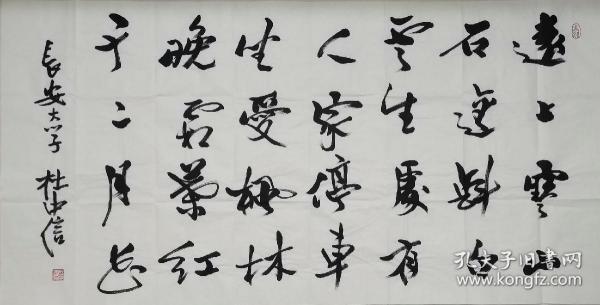 遠上寒山
石逕斜白
雲生處有
人家停車
坐愛楓林
晚霜葉紅
于二月花
長安大學 杜中信
孔夫子旧书网
www.kongfz.com